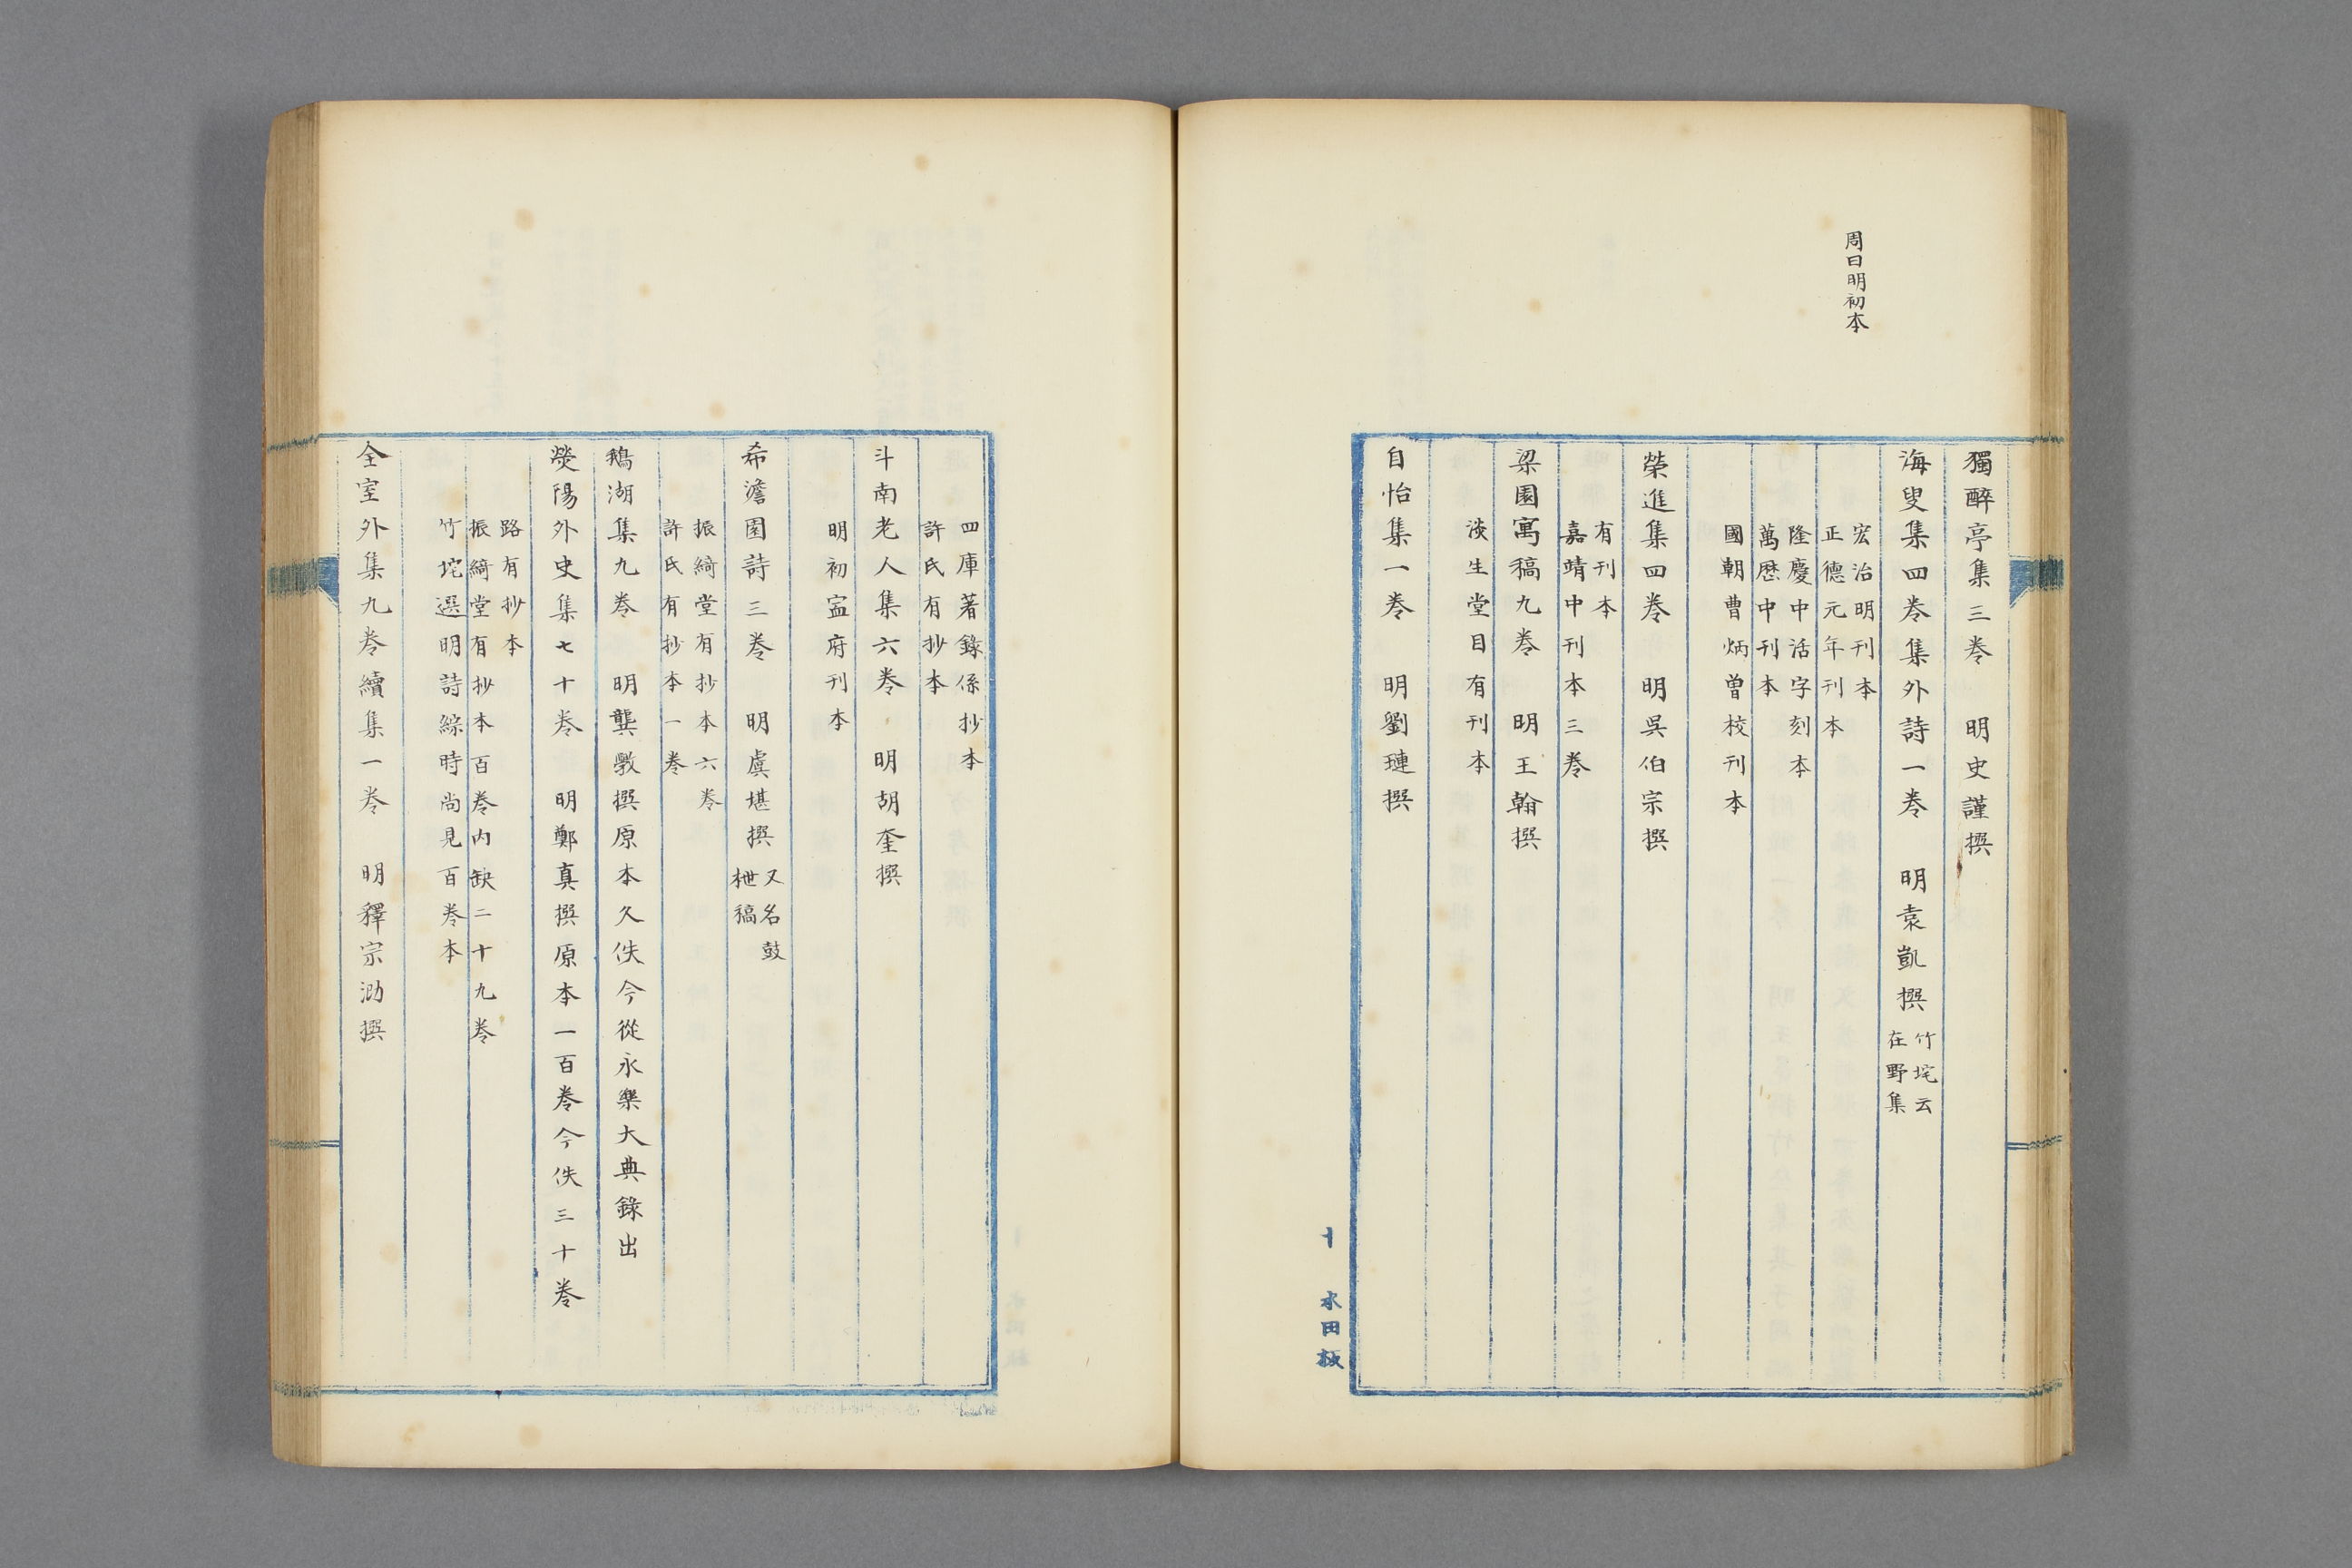 周曰明初本
獨醉亭集三卷　明史謹撰
海叟集四卷集外詩一卷　明袁凱撰
竹垞云
在野集
宏治明刊本
正德元年刊本
隆慶中活字刻本
萬歷中刊本
國朝曹炳曾校刊本
榮進集四卷　明吳伯宗撰
有刊本
嘉靖中刊本三卷
梁園寓稿九卷　明王翰撰
淡生堂目有刊本
自怡集一卷　明劉璉撰
十　水田板
四庫著錄係抄本
許氏有抄本
斗南老人集六卷　明胡奎撰
明初寍府刊本
希澹園詩三卷　明虞堪撰
又名鼓
枻稿
振綺堂有抄本六卷
許氏有抄本一卷
鵝湖集九卷　明龔斆撰原本久佚今從永樂大典錄出
滎陽外史集七十卷　明鄭真撰原本一百卷今佚三十卷
路有抄本
振綺堂有抄本百卷内缺二十九卷
竹垞選明詩綜時尚見百卷本
全室外集九卷續集一卷　明釋宗泐撰